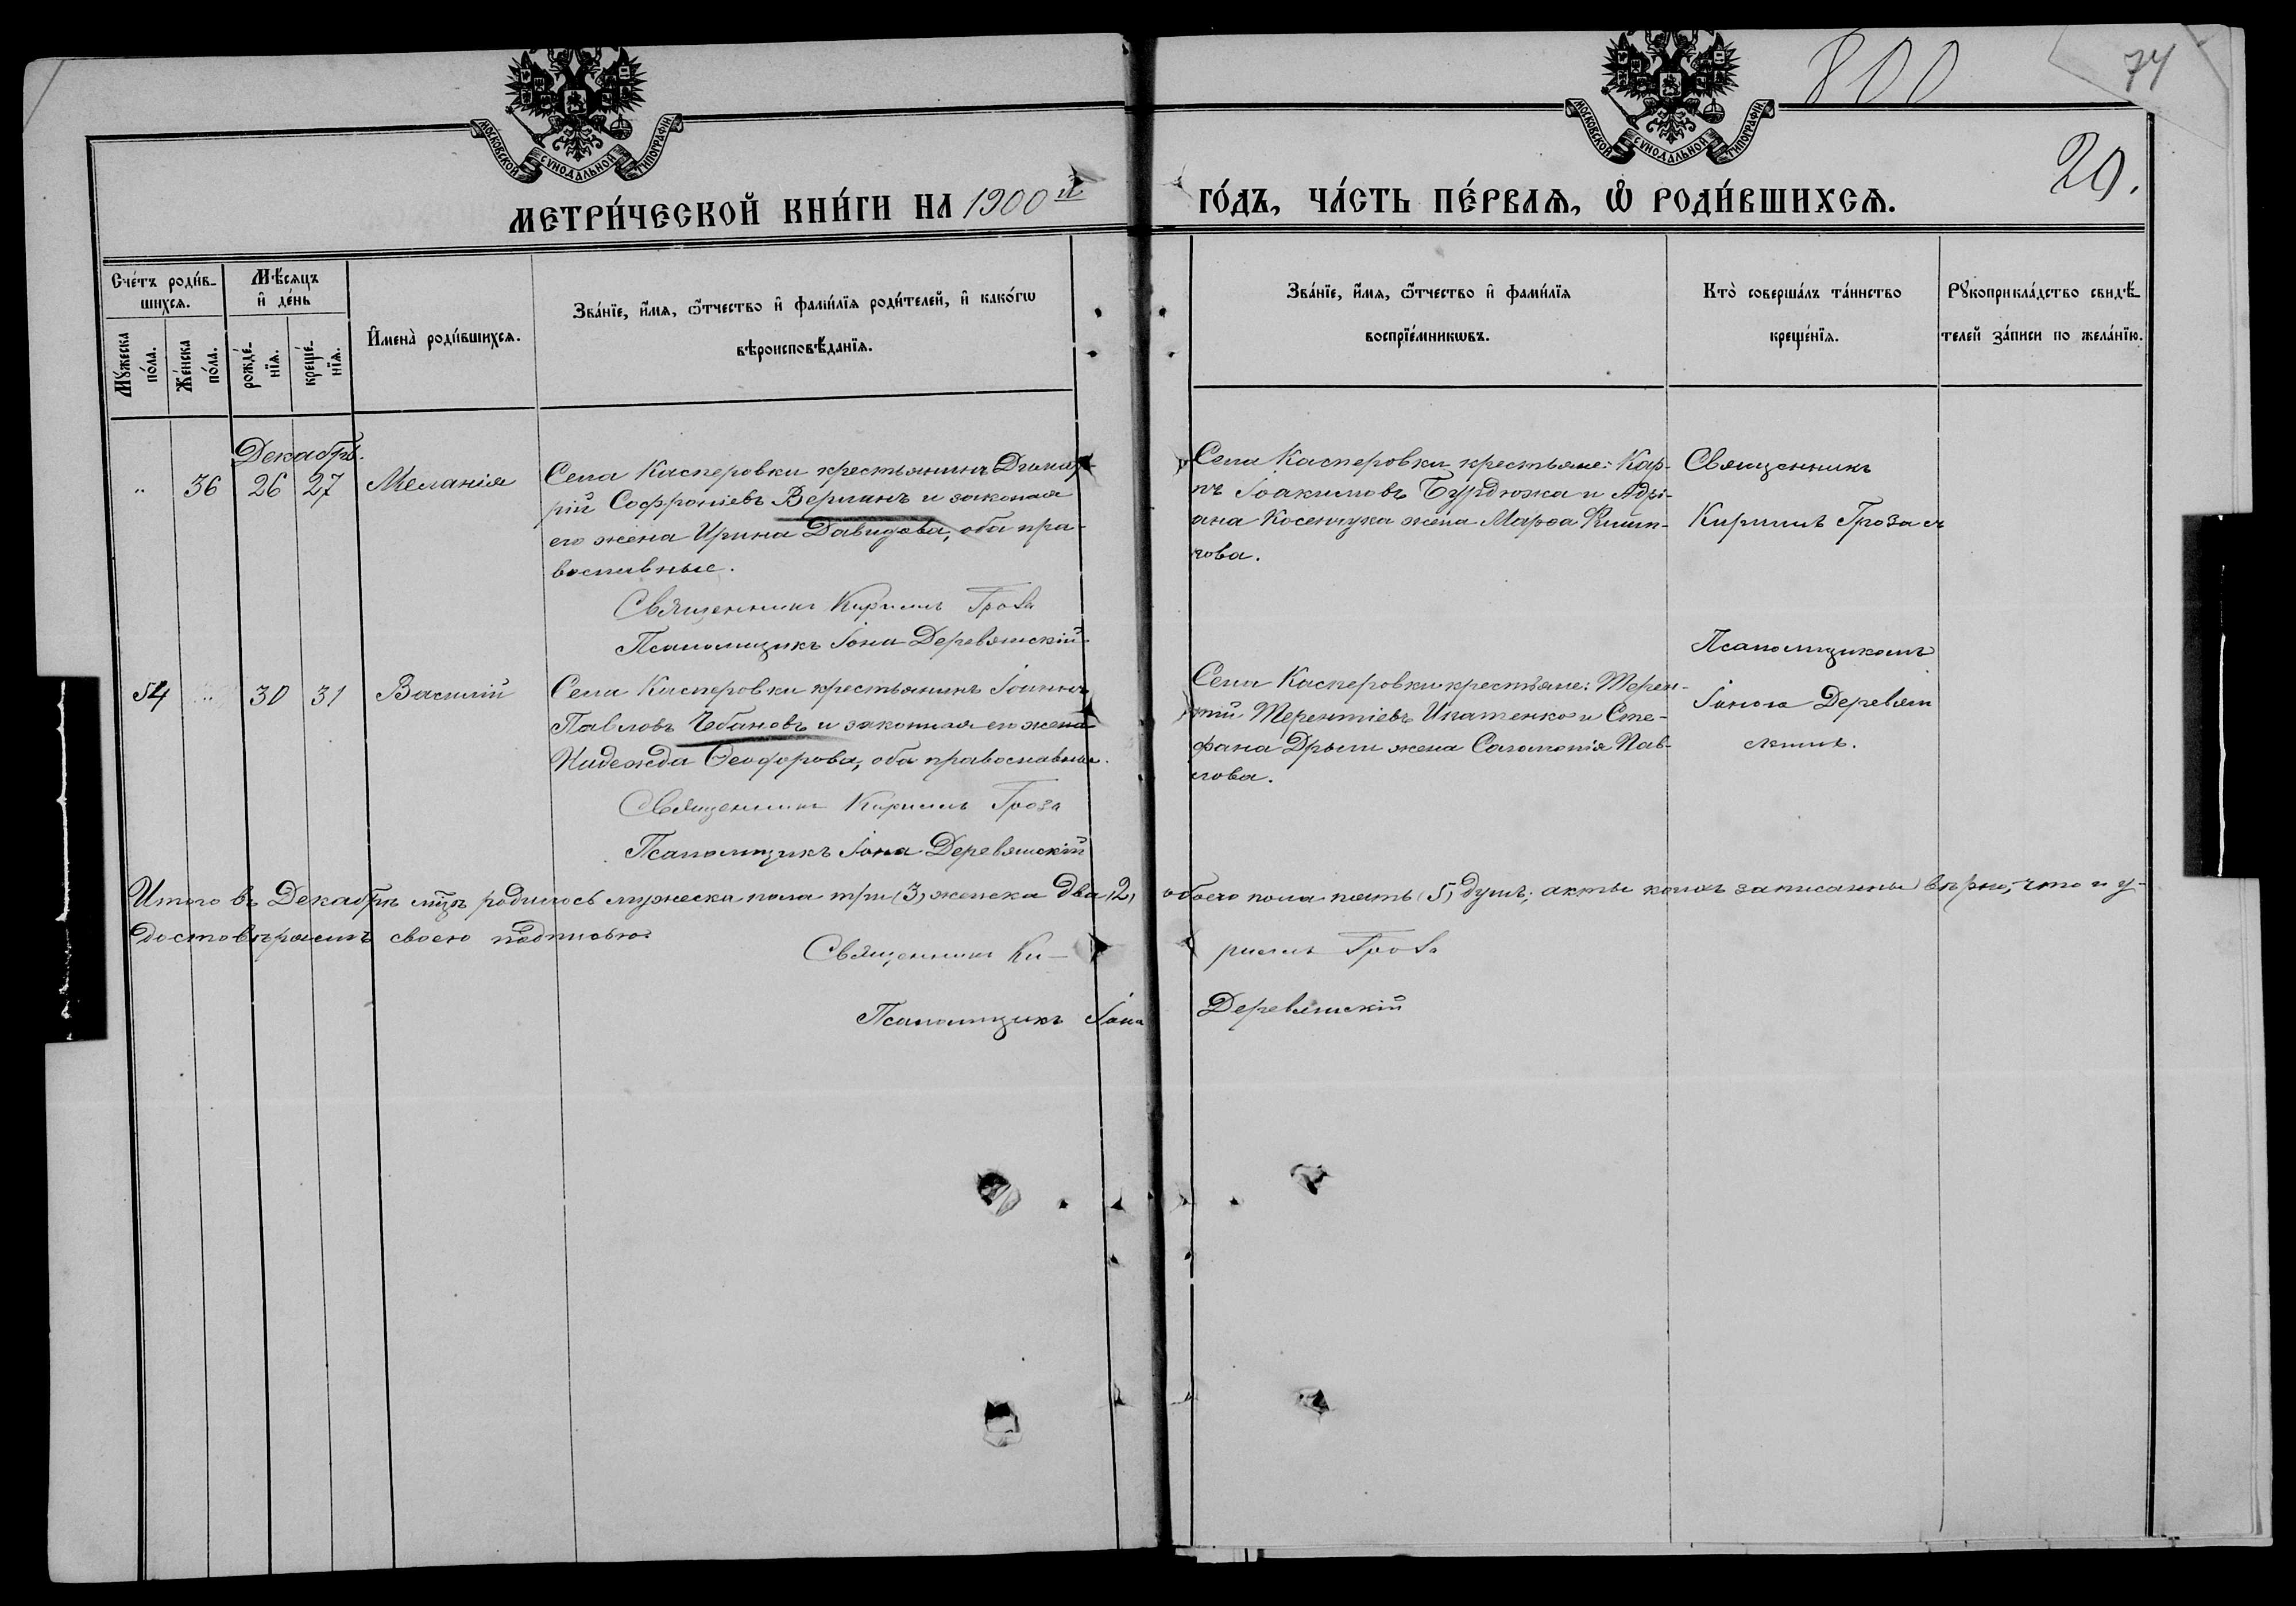 МОСКОВСКОЙ СѴНОДАЛЬНОЙ ТИПОГРАФІИ
МОСКОВСКОЙ СѴНОДАЛЬНОЙ ТИПОГРАФІИ
800
74
20.
МЕТРИ́ЧЕСКОЙ КНИ́ГИ НА 1900 й
ГО́ДЪ, ЧА́СТЬ ПЕ́РВАѦ, Ѿ РОДИ́ВШИХСѦ.
Сче́тъ роди́в-
шихсѧ.
Мꙋ́жеска
по́ла.
Же́нска
по́ла.
Мѣ́сяцъ
и҆ де́нь
рожде́-
нїѧ.
креще́-
нїѧ.
И҆мена̀ роди́вшихсѧ.
Зва́нїе, и҆́мѧ, ѻ҆́тчество и҆ фами́лїѧ роди́телей, и҆ како́гѡ
вѣроисповѣ́данїѧ.
Зва́нїе, и҆́мѧ, ѻ҆́тчество и҆ фами́лїѧ
воспрїе́мникѡвъ.
Кто̀ соверша́лъ та́инство
креще́нїѧ.
Рꙋкоприкла́дство свидѣ́-
телей за́писи по жела́нїю.
Декабрь.
" 36 26 27 Меланія
Села Касперовки крестьянинъ
рій Софроніевъ Верланъ и законая
его жена Ирина Давидова, оба пра-
вославные.
Священникъ Кириллъ Гроза
Псаломщикъ Іона Деревянскій
Села Касперовки крестьяне: Кар-
пъ Іоакимовъ Бурдюжа и Адрі-
ана Косенчука жена Марѳа
лова.
Священникъ
Кириллъ Гроза съ
Псаломщикомъ
Іоною Деревян
скимъ.
54 " 30 31 Василій
Села Касперовки крестьянинъ Іоаннъ
Павловъ Чебановъ и законная его жена
Надежда Ѳеодорова, оба православные.
Священникъ Кириллъ Гроза
Псаломщикъ Іона Деревянскій
Села Касперовки крестьяне: Терен-
тій Терентіевъ Ипатенко и Сте-
фана Дрыги жена Саломонія Пав-
лова.
Итого въ Декабрѣ мцѣ родилось мужеска пола три (3) женска два (2) обоего пола пять (5) душъ; акты коихъ записанны вѣрно, что и у-
достовѣряемъ своею подписью:
Священникъ Ки-
риллъ Гроза
Псаломщикъ Іона Деревянскій